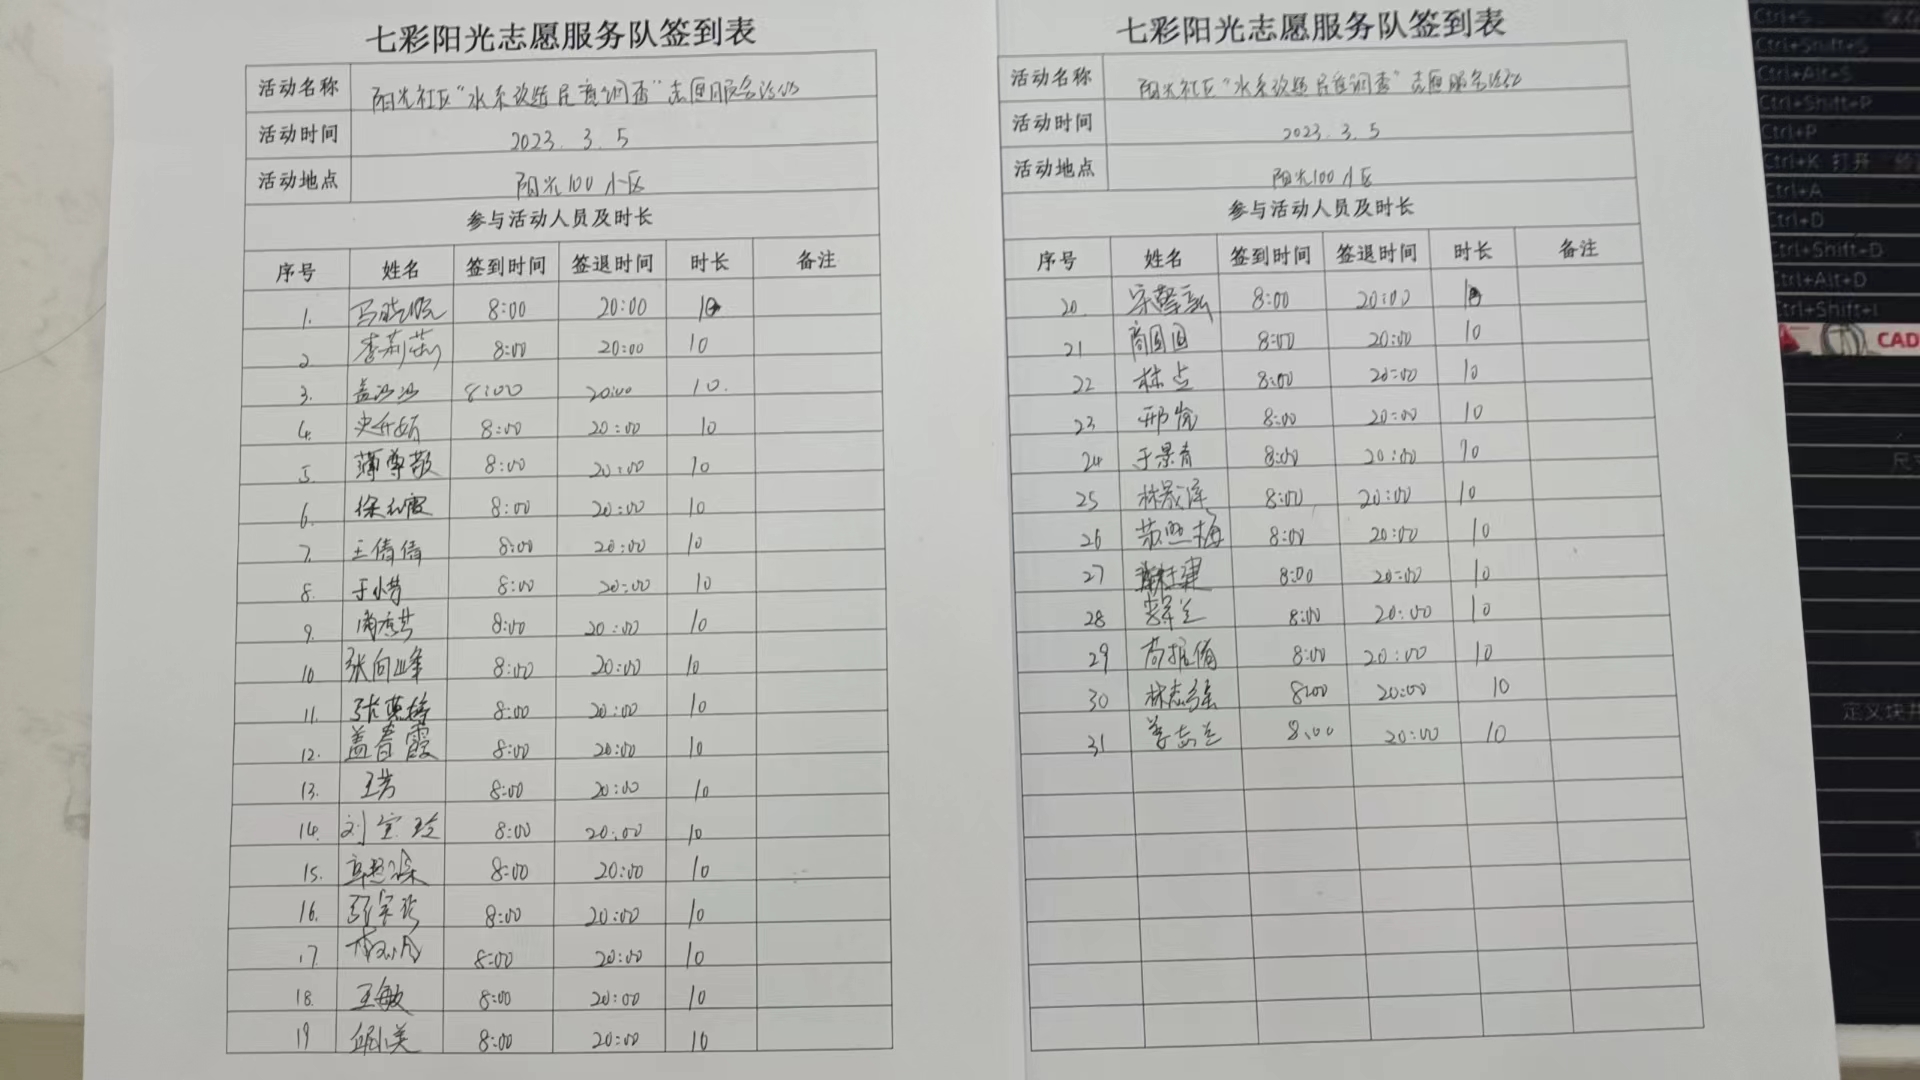 七彩阳光志愿服务队签到表
活动名称 阳光社区“水系改造民意调查”志愿服务活动
活动时间 2023.3.5
活动地点 阳光100小区
参与活动人员及时长
序号 姓名 签到时间 签退时间 时长 备注
1. 8:00 20:00 10
2 李莉莉 8:00 20:00 10
3. 盖沙沙 8:00 20:00 10.
4. 8:00 20:00 10
5 薄尊敬 8:00 20:00 10
6. 8:00 20:00 10
7. 王倩倩 8:00 20:00 10
8. 于小梅 8:00 20:00 10
9. 8:00 20:00 10
10 张向峰 8:00 20:00 10
11. 张英梅 8:00 20:00 10
12. 盖春霞 8:00 20:00 10
13. 王芳 8:00 20:00 10
14. 刘宝玲 8:00 20:00 10
15. 8:00 20:00 10
16. 8:00 20:00 10
17 8:00 20:00 10
18. 王敏 8:00 20:00 10
19 邱小美 8:00 20:00 10
七彩阳光志愿服务队签到表
活动名称 阳光社区“水系改造民意调查”志愿服务活动
活动时间 2023.3.5
活动地点 阳光100小区
参与活动人员及时长
序号 姓名 签到时间 签退时间 时长 备注
20 8:00 20:00 10
21 商圆圆 8:00 20:00 10
22 林点 8:00 20:00 10
23 8:00 20:00 10
24 于景青 8:00 20:00 10
25 林晟泽 8:00 20:00 10
26 8:00 20:00 10
27 8:00 20:00 10
28 8:00 20:00 10
29 8:00 20:00 10
30 林志强 8:00 20:00 10
31 姜志兰 8:00 20:00 10
Ctrl+S
Ctrl+Shift+S
Ctrl+Alt+S
Ctrl+Shift+P
Ctrl+P
Ctrl+K 打开
Ctrl+A
Ctrl+D
Ctrl+Shift+D
Ctrl+Alt+D
Ctrl+Shift+I
CAD
定义块